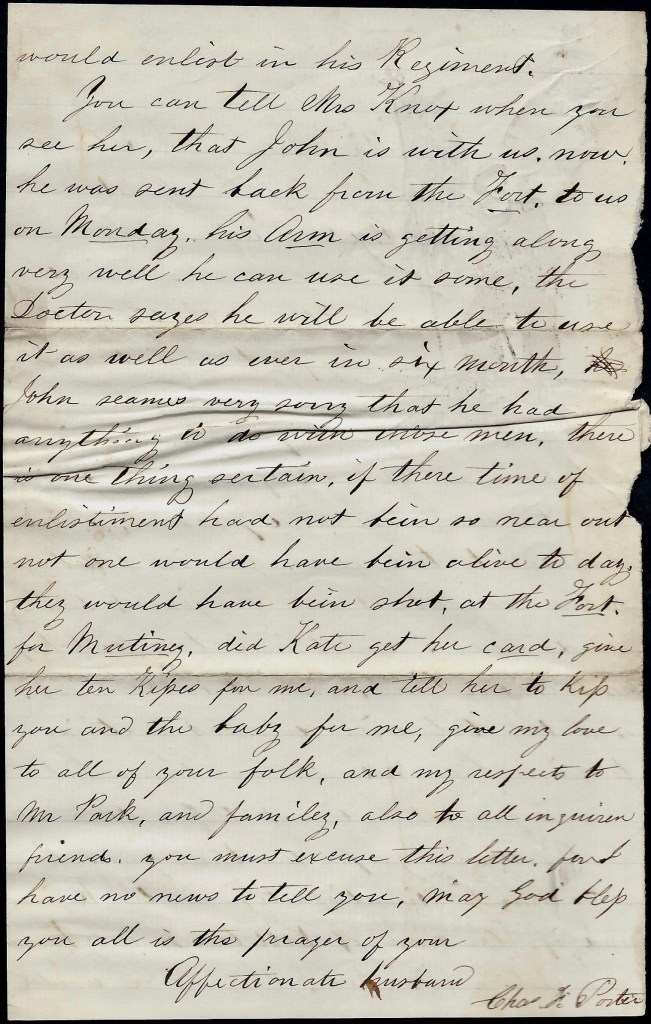 would enlist in his Regiment.
You can tell Mrs Knox when you
see her, that John is with us. now.
he was sent back from the Fort. to us
on Monday. his Arm is getting along
very well he can use it some, the
Doctor sayes he will be able to use
it as well as ever in six month,
John seames very sorry that he had
anything to do with those men, there
is one thing sertain, if there time of
enlistiment had not bein so near out
not one would have bein alive to day.
they would have bein shot, at the Fort.
for Mutiney, did Kate get her card, give
her ten Kises for me, and tell her to Kiss
you and the baby for me, give my love
to all of your folk, and my respects to
Mr Park, and familey, also to all inquiren
friends. you must excuse this letter. for I
have no news to tell you, May God bless
you all is the prayer of your
Affectionate husband
Chas H Porter